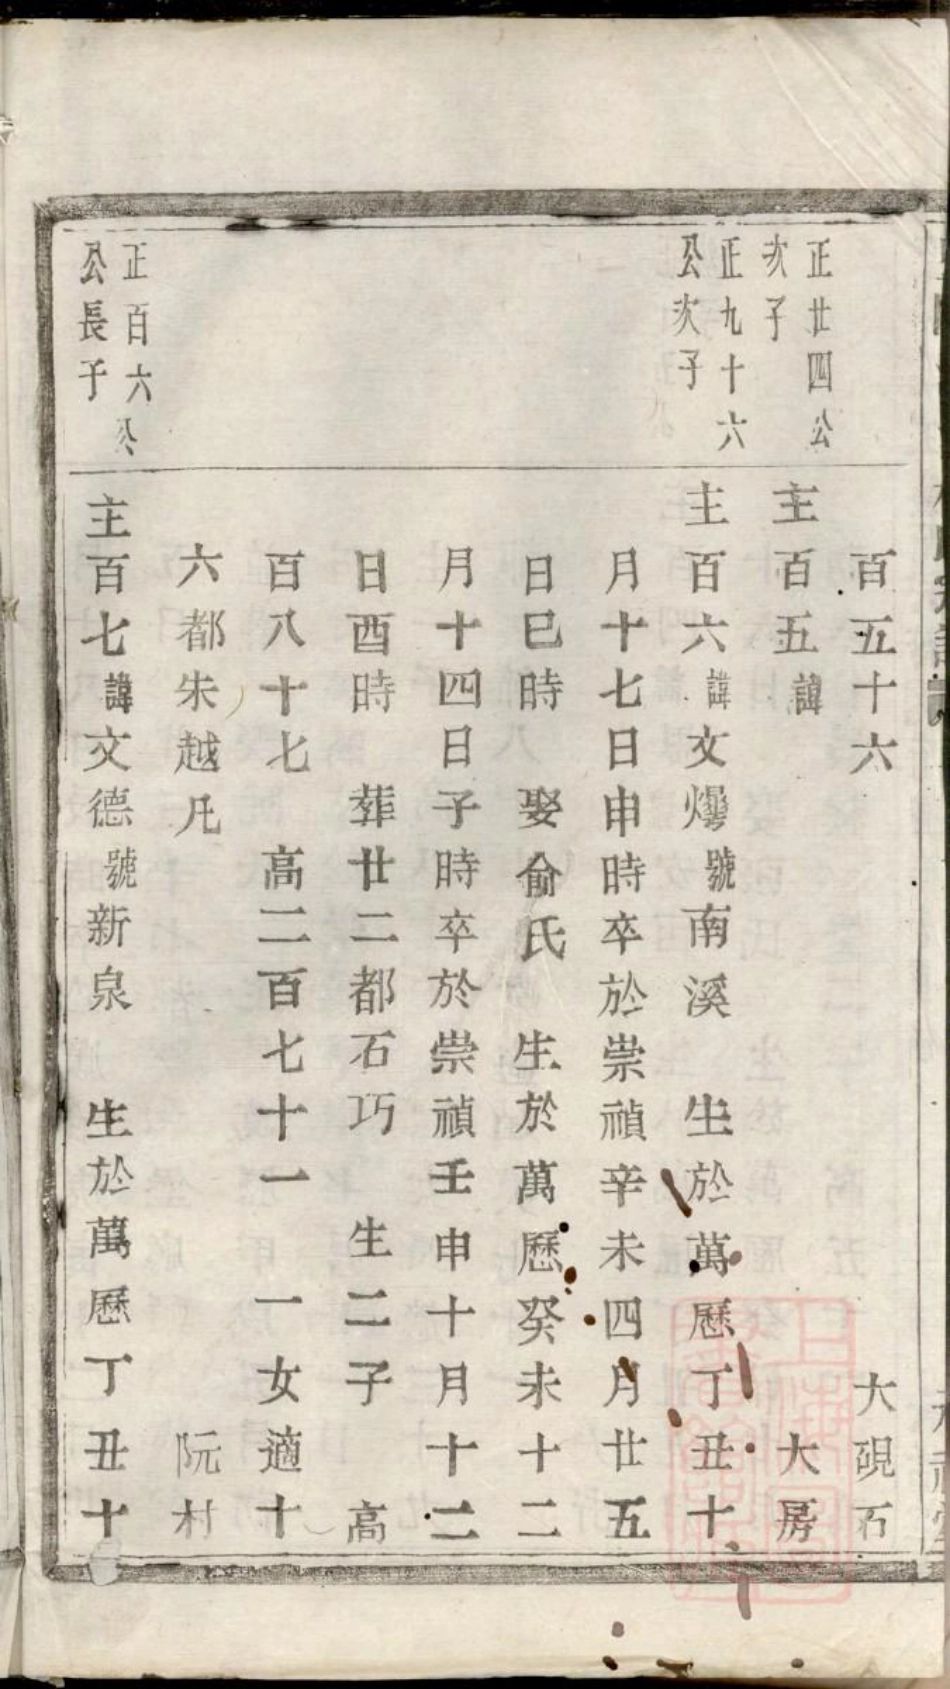 百五十六 大硯石
正廿四公
次子
主百五諱 大房
正九十六
公次子
主百六諱文爆號南溪 生於萬歷丁丑十
月十七日申時卒於崇禎辛未四月廿五
日巳時 娶俞氏 生於萬歷癸未十二
月十四日子時卒於崇禎壬申十月十二
日酉時 葬廿二都石巧 生二子 高
百八十七 高二百七十一 一女適十
六都朱越凡 阮村
正百六公
公長子
主百七諱文德號新泉 生於萬歷丁丑十